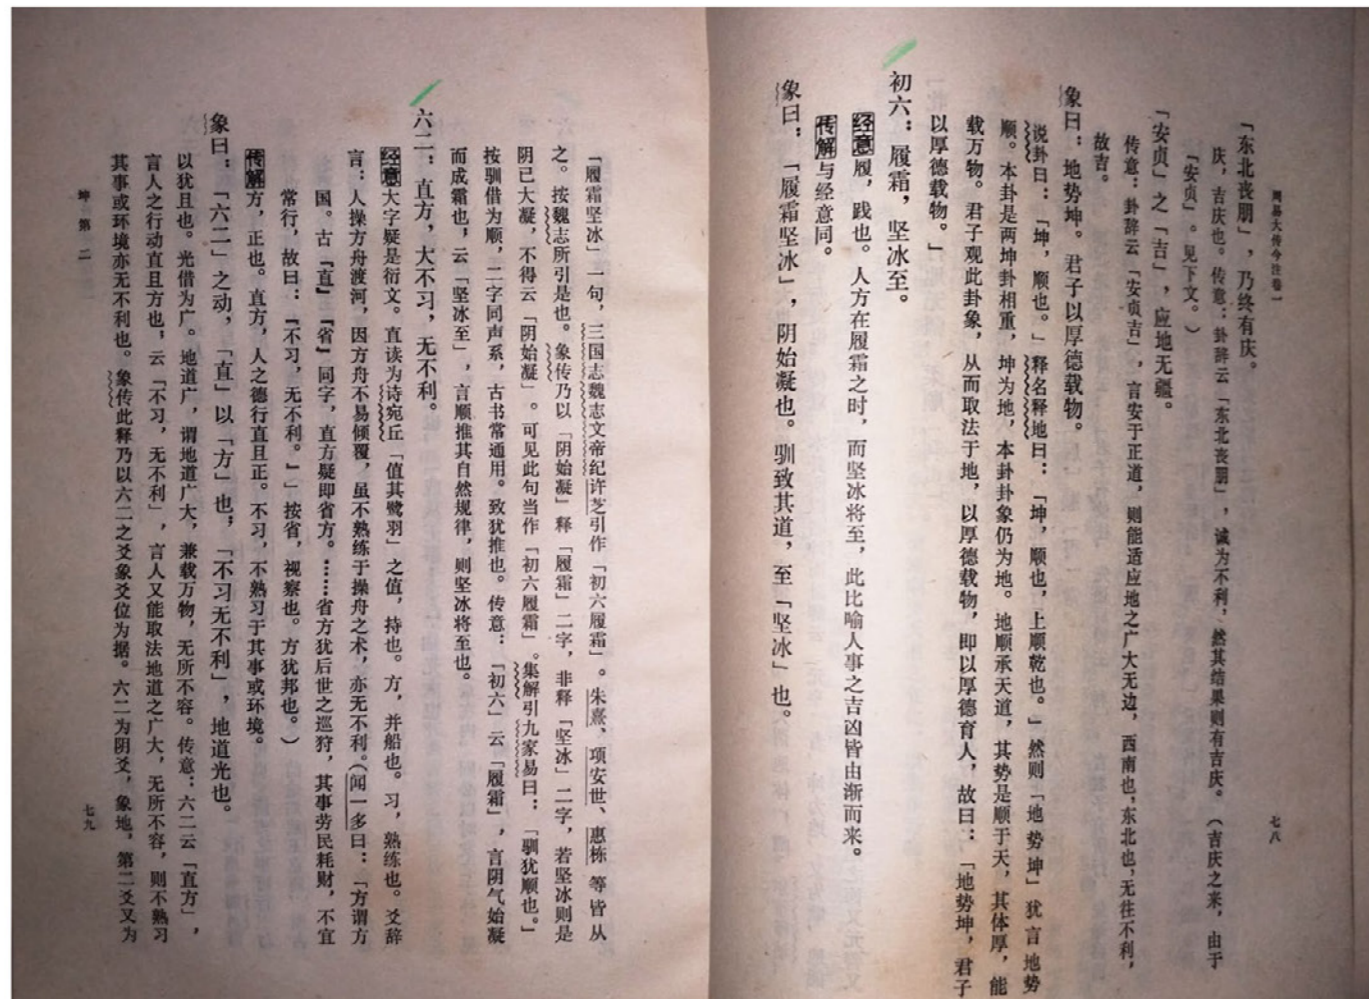 周易大传今注卷一
七八
「东北丧朋」，乃终有庆。
庆，吉庆也。传意：卦辞云「东北丧朋」，诚为不利，然其结果则有吉庆。（吉庆之来，由于
「安贞」。见下文。）
「安贞」之「吉」，应地无疆。
传意：卦辞云「安贞吉」，言安于正道，则能适应地之广大无边，西南也，东北也，无往不利，
故吉。
象曰：地势坤。君子以厚德载物。
说卦曰：「坤，顺也。」释名释地曰：「坤，顺也，上顺乾也。」然则「地势坤」犹言地势
顺。本卦是两坤卦相重，坤为地，本卦卦象仍为地。地顺承天道，其势是顺于天，其体厚，能
载万物。君子观此卦象，从而取法于地，以厚德载物，即以厚德育人，故曰：「地势坤，君子
以厚德载物。」
初六：履霜，坚冰至。
经意履，践也。人方在履霜之时，而坚冰将至，此比喻人事之吉凶皆由渐而来。
传解与经意同。
象曰：「履霜坚冰」，阴始凝也。驯致其道，至「坚冰」也。
「履霜坚冰」一句，三国志魏志文帝纪许芝引作「初六履霜」。朱熹、项安世、惠栋等皆从
之。按魏志所引是也。象传乃以「阴始凝」释「履霜」二字，非释「坚冰」二字，若坚冰则是
阴已大凝，不得云「阴始凝」。可见此句当作「初六履霜」。集解引九家易曰：「驯犹顺也。」
按驯借为顺，二字同声系，古书常通用。致犹推也。传意：「初六」云「履霜」，言阴气始凝
而成霜也，云「坚冰至」，言顺推其自然规律，则坚冰将至也。
六二：直方，大不习，无不利。
经意大字疑是衍文。直读为诗宛丘「值其鹭羽」之值，持也。方，并船也。习，熟练也。爻辞
言：人操方舟渡河，因方舟不易倾覆，虽不熟练于操舟之术，亦无不利。（闻一多曰：「方谓方
国。古『直』『省』同字，直方疑即省方。……省方犹后世之巡狩，其事劳民耗财，不宜
常行，故曰：『不习，无不利。』」按省，视察也。方犹邦也。）
传解方，正也。直方，人之德行直且正。不习，不熟习于其事或环境。
象曰：「六二」之动，「直」以「方」也；「不习无不利」，地道光也。
以犹且也。光借为广。地道广，谓地道广大，兼载万物，无所不容。传意：六二云「直方」，
言人之行动直且方也；云「不习，无不利」，言人又能取法地道之广大，无所不容，则不熟习
其事或环境亦无不利也。象传此释乃以六二之爻象爻位为据。六二为阴爻，象地，第二爻又为
坤 第二
七九